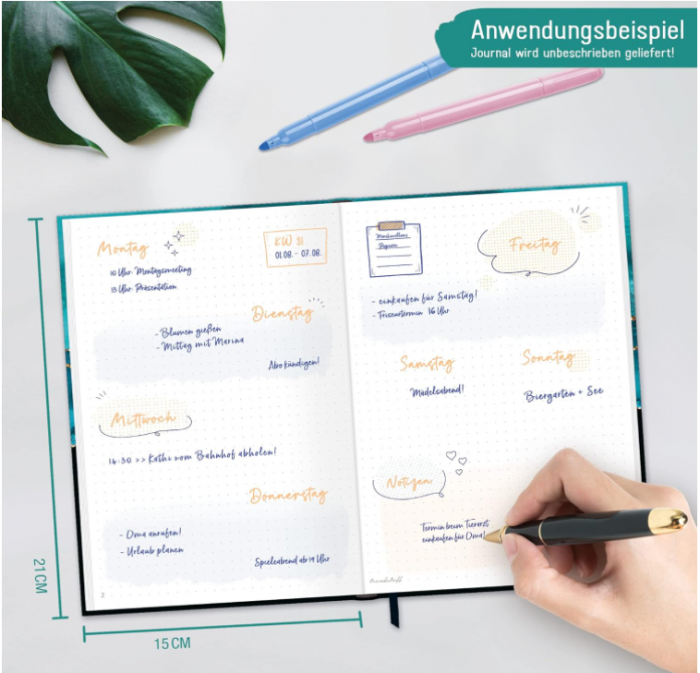 Anwendungsbeispiel
Journal wird unbeschrieben geliefert!
Montag
10 Uhr Montagsmeeting
13 Uhr Präsentation
KW 31
01.08. - 07.08.
Dienstag
- Blumen gießen
- Mittag mit Marina
Abo kündigen!
Mittwoch
16:30 >> Kathi vom Bahnhof abholen!
Donnerstag
- Oma anrufen!
- Urlaub planen
Spieleabend ab 19 Uhr
2
Marshmallows
Freitag
- einkaufen für Samstag!
- Friseurtermin 16 Uhr
Samstag
Mädelsabend!
Sonntag
Biergarten + See
Notizen
Termin beim Tierarzt
einkaufen für Oma!
21 CM
15 CM